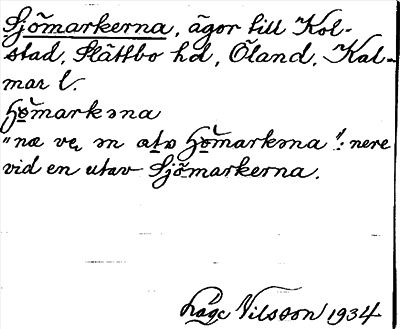 Sjömarkerna, ägor till Kol-
stad, Slättbo hd, Öland, Kal-
mar l.
hömarkəna
"næ ve, ən atə hömarkəna": nere
vid en utav Sjömarkerna.
Åke Nilsson 1934